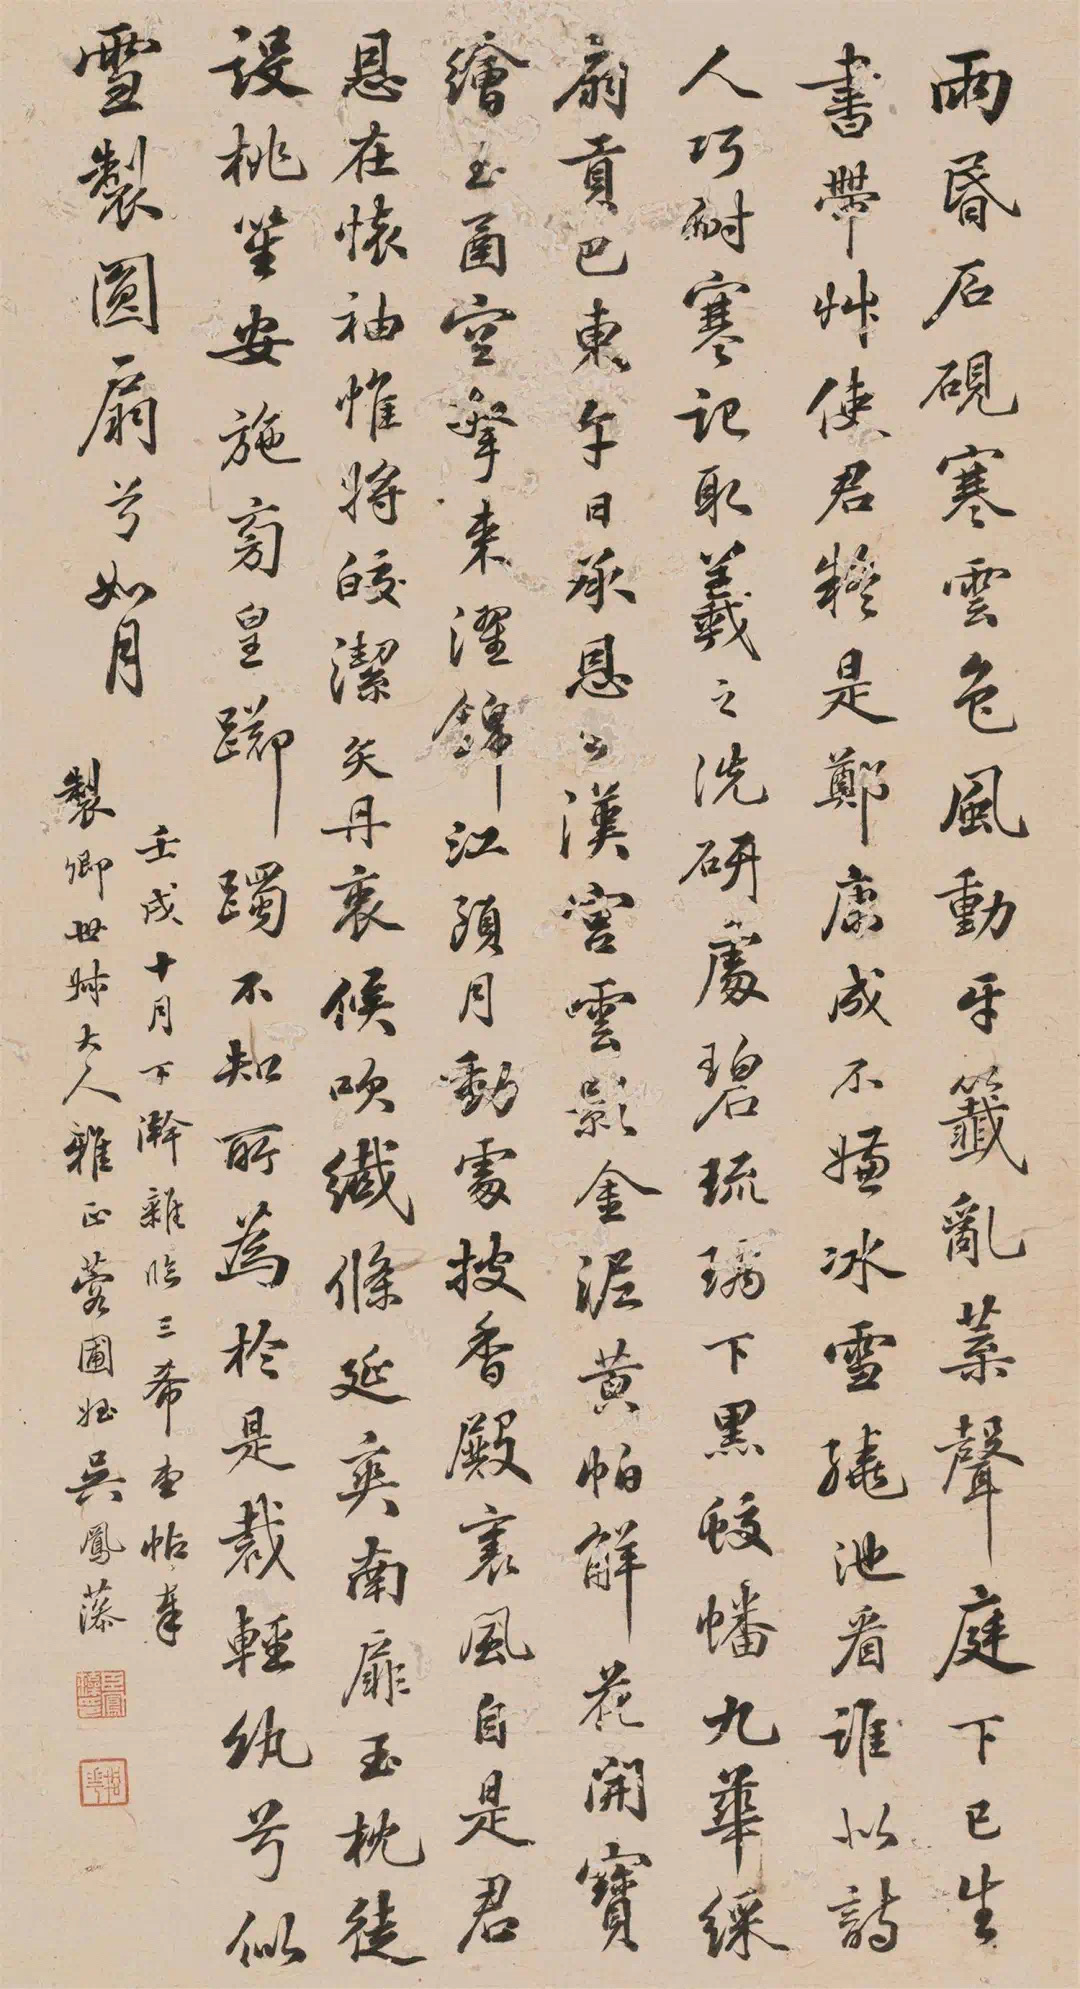 雨昏石硯寒雲色風動牙籤亂葉聲庭下已生
書帶艸使君疑是鄭康成不嫌冰雪繞池看誰似詩
人巧耐寒記取羲之洗研處碧琉璃下黑蛟蟠九華綵
扇貢巴東午日承恩出漢宮雲影金泥黃帕解花開寶
繪玉函空擎來濯錦江頭月動處披香殿裏風自是君
恩在懷袖惟將皎潔矢丹衷候吹纖絛延爽南扉玉枕徒
設桃笙安施罔皇躑躅不知所為於是裁輕紈兮似
雪製圓扇兮如月
壬戌十月下澣雜臨三希堂帖奉
製卿世叔大人雅正蓉圃姪吳鳳藻